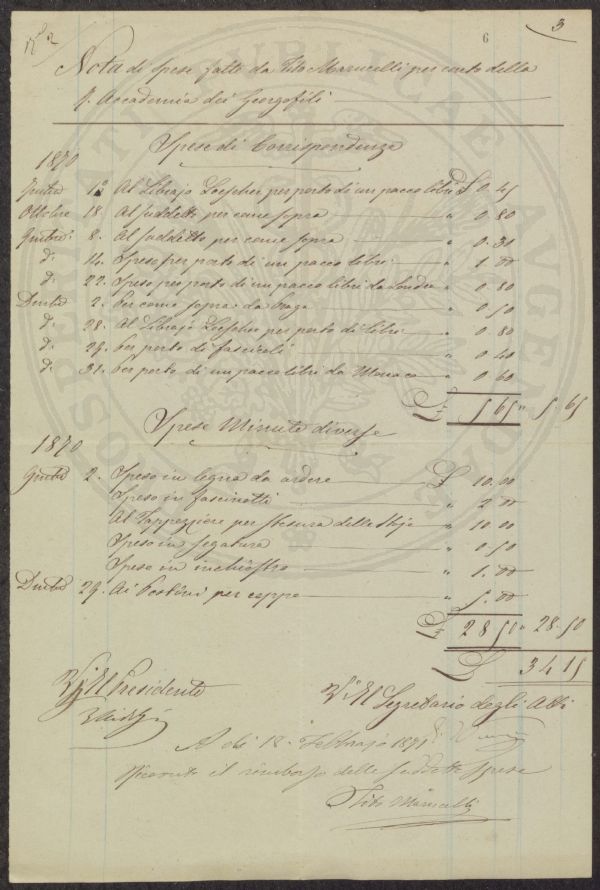 N° 2
6
3
Nota di Spese fatte da Tito Marucelli per conto della
R. Accademia dei Georgofili
PROSPERITATI PUBLICAE AUGENDAE
Spese di Corrispondenza
1870
1° Al Librajo Loescher per porto di un pacco libri £ 0.45
Ottobre 18. Al suddetto per come sopra " 0.80
8. Al suddetto per come sopra " 0.30
d.° 14. Spese per porto di un pacco libri " 1.00
d.° 22. Spese per porto di un pacco libri da Londra " 0.80
2. Per come sopra da Praga " 0.50
d.° 28. Al Librajo Loescher per porto di libri " 0.80
d.° 29. Per porto di fascicoli " 0.40
d.° 31. Per porto di un pacco libri da Monaco " 0.60
£ 5 65 " 5 65
Spese Minute diverse
1870
2. Spese in legna da ardere £ 10.00
Spese in fascinotti " 2.00
Al Tappezziere per stesura delle stoje " 10.00
Spese in segatura " 0.50
Spese in inchiostro " 1.00
29. Ai Postini per ceppo " 5.00
£ 28 50 " 28.50
£ 34 15
V° Il Presidente
V° Il Segretario degli Atti
A dì 18. Febbrajo 1871
Ricevuto il rimborso delle suddette spese
Tito Marucelli